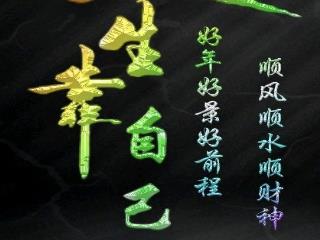 顺风顺水顺财神
好年好景好前程
生自己